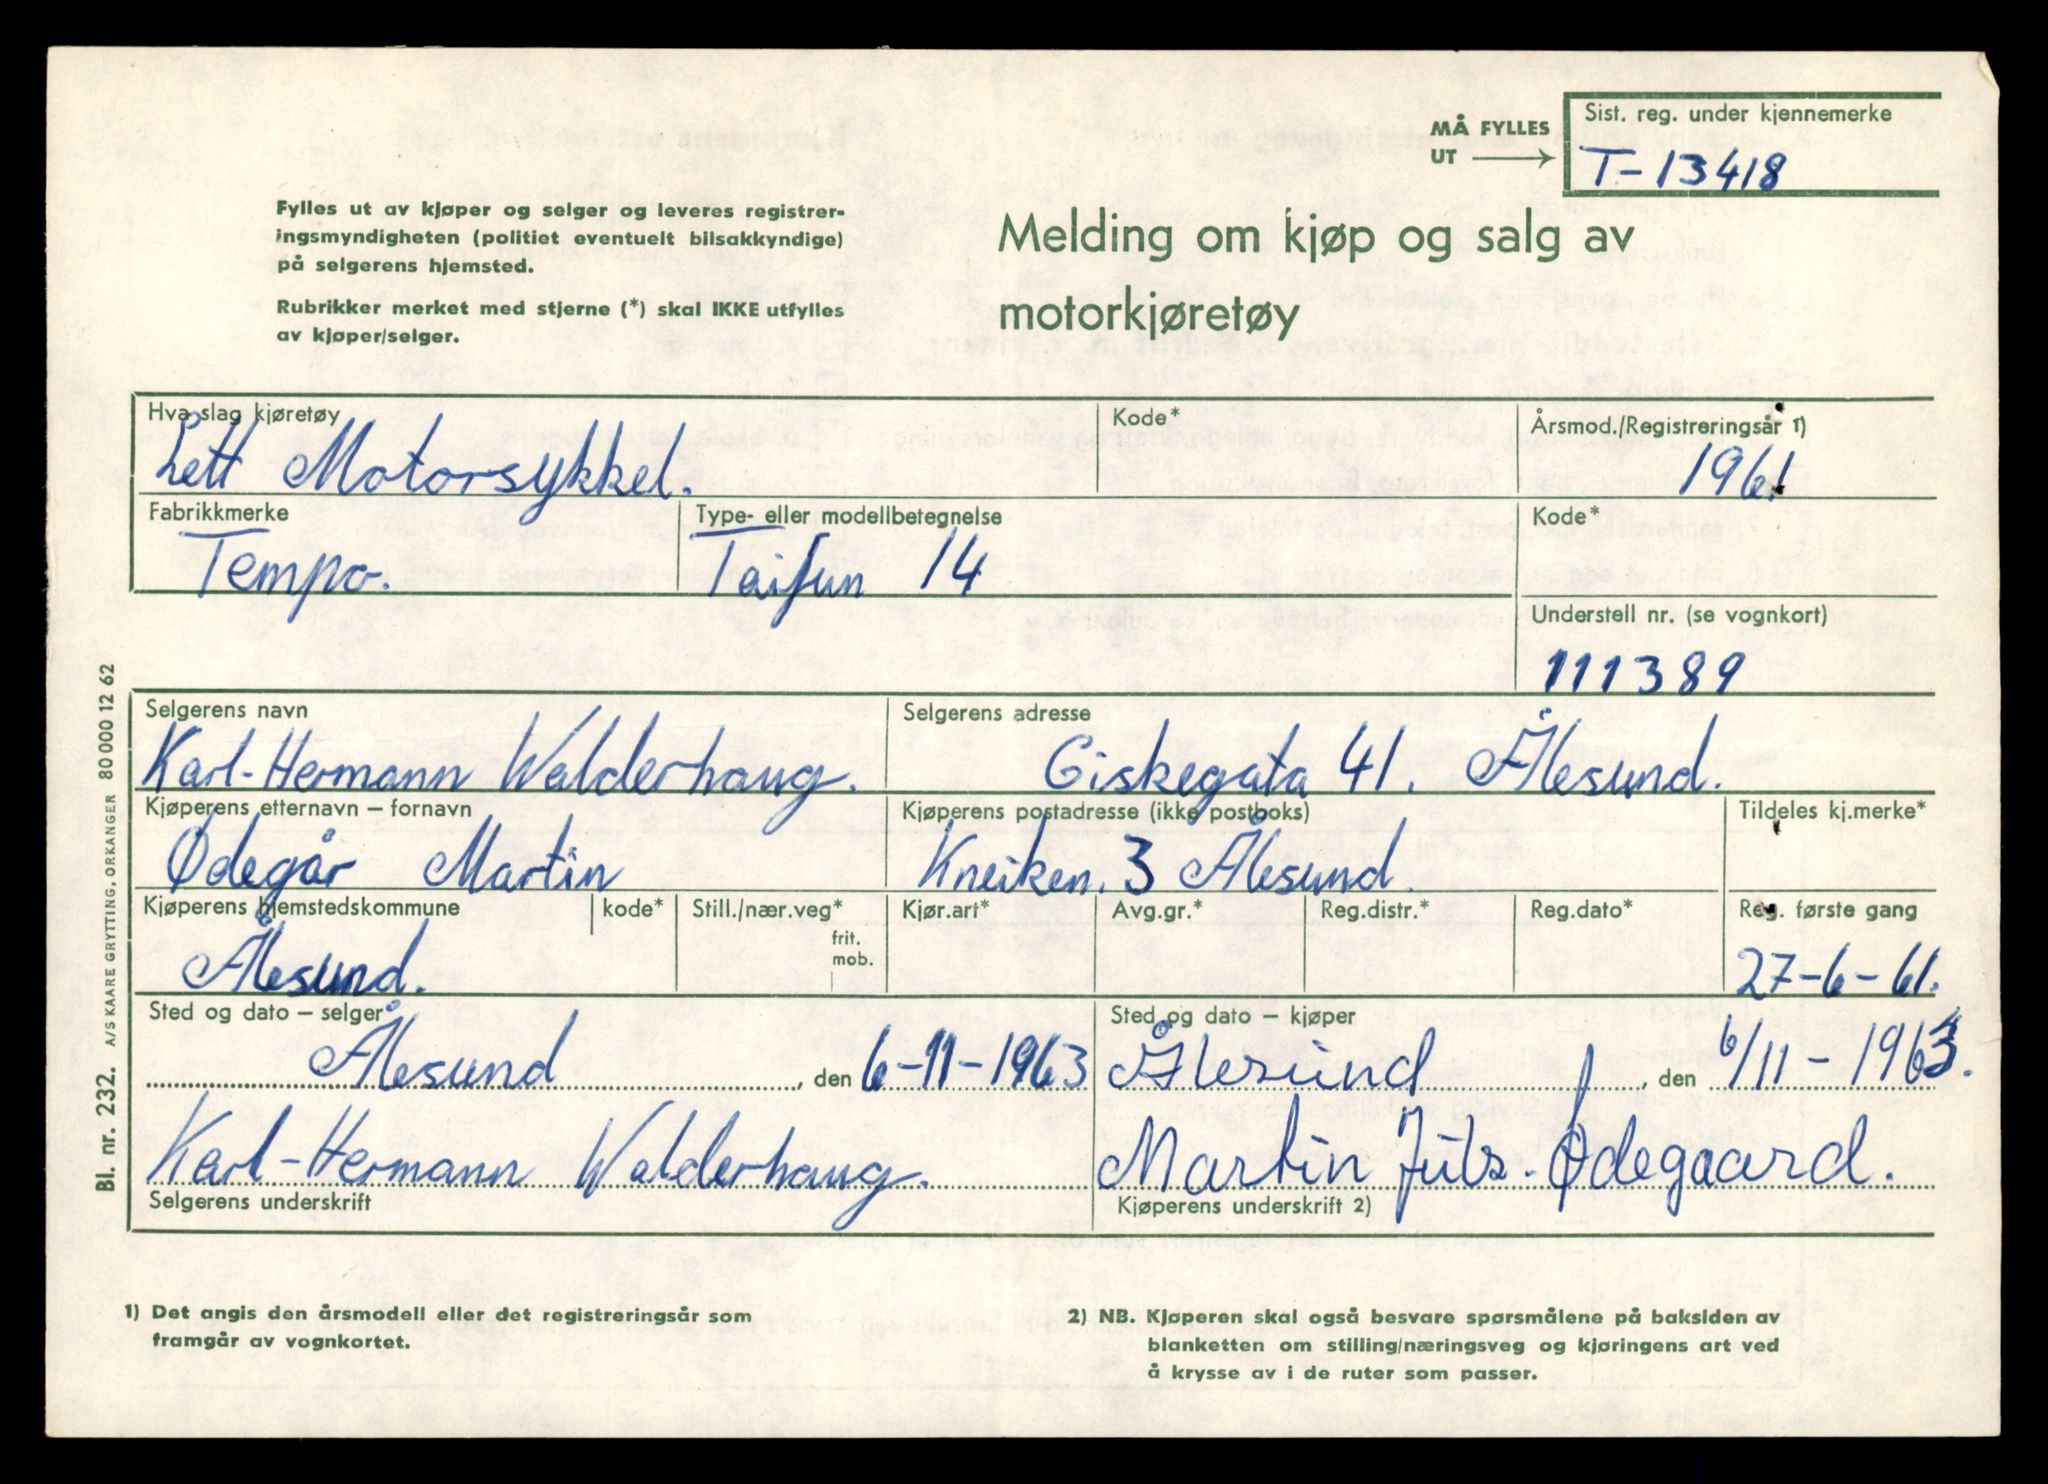 MÅ FYLLES
UT
Sist. reg. under kjennemerke
T-13418
Fylles ut av kjøper og selger og leveres registrer-
ingsmyndigheten (politiet eventuelt bilsakkyndige)
på selgerens hjemsted.
Rubrikker merket med stjerne (*) skal IKKE utfylles
av kjøper/selger.
Melding om kjøp og salg av
motorkjøretøy
Hva slag kjøretøy
Lett Motorsykkel.
Kode*
Årsmod./Registreringsår 1)
1961
Fabrikkmerke
Tempo.
Type- eller modellbetegnelse
Taifun 14
Kode*
Understell nr. (se vognkort)
111389
Selgerens navn
Karl-Hermann Walderhaug.
Selgerens adresse
Giskegata 41. Ålesund.
Kjøperens etternavn – fornavn
Ødegår Martin
Kjøperens postadresse (ikke postboks)
Kneiken. 3 Ålesund.
Tildeles kj.merke*
Kjøperens hjemstedskommune
Ålesund.
kode*
Still./nær.veg*
frit.
mob.
Kjør.art*
Avg.gr.*
Reg.distr.*
Reg.dato*
Reg. første gang
27-6-61.
Sted og dato – selger
Ålesund, den 6-11-1963
Sted og dato – kjøper
Ålesund, den 6/11-1963.
Karl-Hermann Walderhaug.
Selgerens underskrift
Martin Ødegaard.
Kjøperens underskrift 2)
1) Det angis den årsmodell eller det registreringsår som
framgår av vognkortet.
2) NB. Kjøperen skal også besvare spørsmålene på baksiden av
blanketten om stilling/næringsveg og kjøringens art ved
å krysse av i de ruter som passer.
Bl. nr. 232. A/S KAARE GRYTTING, ORKANGER 80 000 12 62